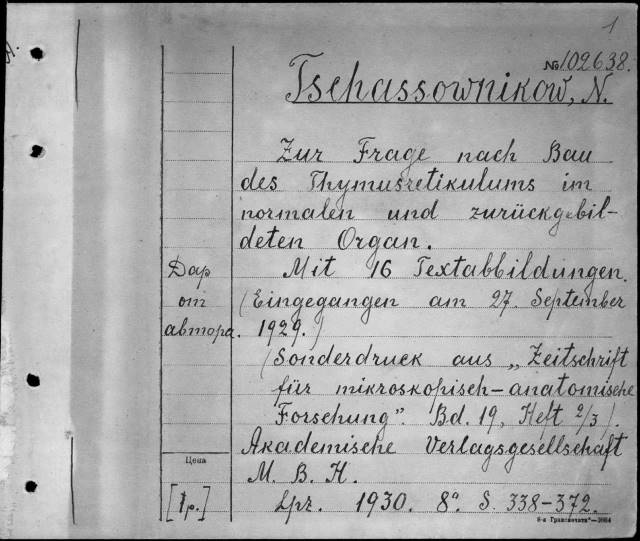 1
№102638.
Tschassownikow, N.
Zur Frage nach Bau
des Thymusretikulums im
normalen und zurückgebil-
deten Organ.
Дар
от
автора.
Mit 16 Textabbildungen.
(Eingegangen am 27. September
1929.)
(Sonderdruck aus „Zeitschrift
für mikroskopisch-anatomische
Forschung". Bd. 19, Heft 2/3).
Akademische Verlagsgesellschaft
M. B. H.
Цена
[1р.]
Lpz. 1930. 8°. S. 338-372.